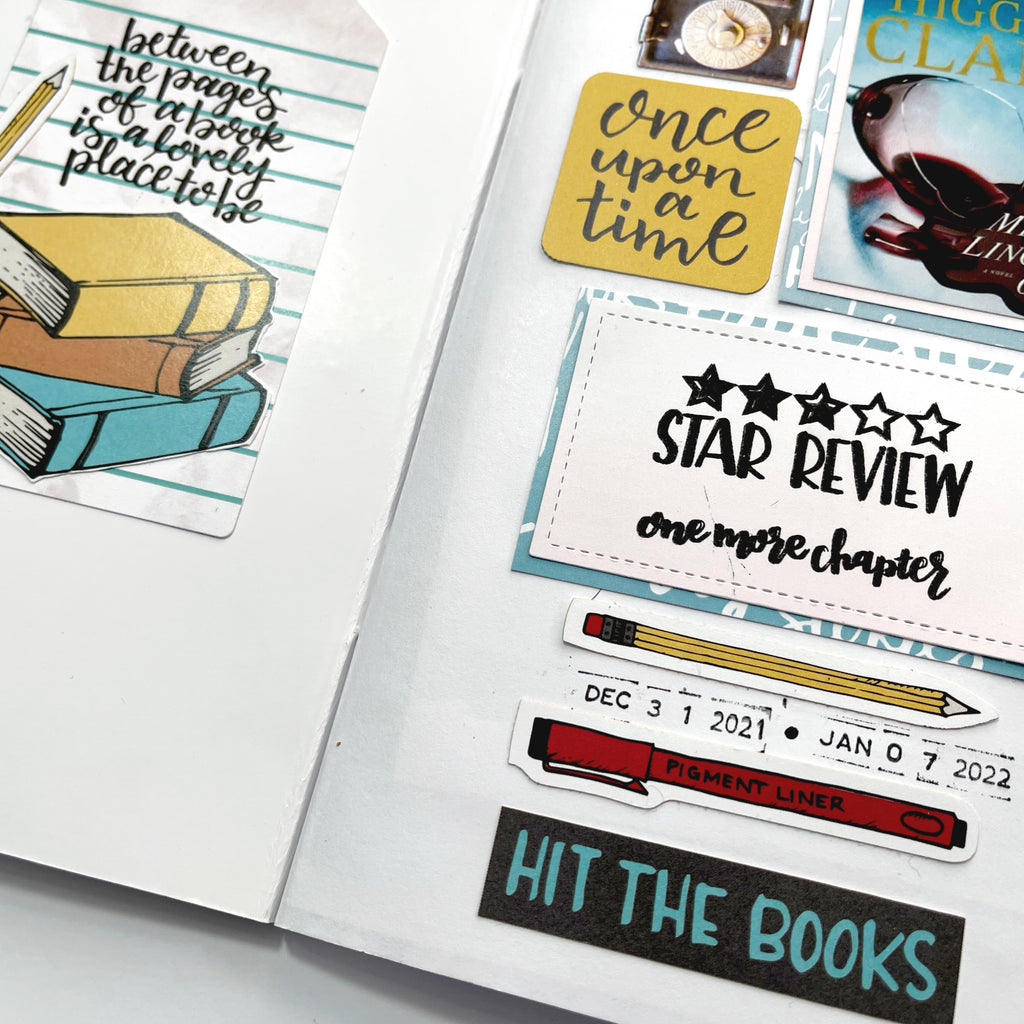 between
the pages
of a book
is a lovely
place to be
once
upon
a
time
CLA
A NOVEL
STAR REVIEW
one more chapter
DEC 3 1 2021 • JAN 0 7 2022
PIGMENT LINER
HIT THE BOOKS